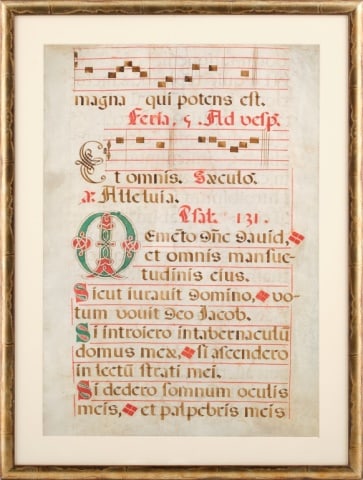 magna qui potens est.
Feria. 5. Ad vesp.
Et omnis. Sæculo.
a: Alleluia.
Psal. 131.
Memēto dñe david,
et omnis mansue
tudinis eius.
Sicut iuravit domino, vo-
tum vovit deo Jacob.
Si introiero intabernaculū
domus meæ, si ascendero
in lectū strati mei.
Si dedero somnum oculis
meis, et palpebris meis